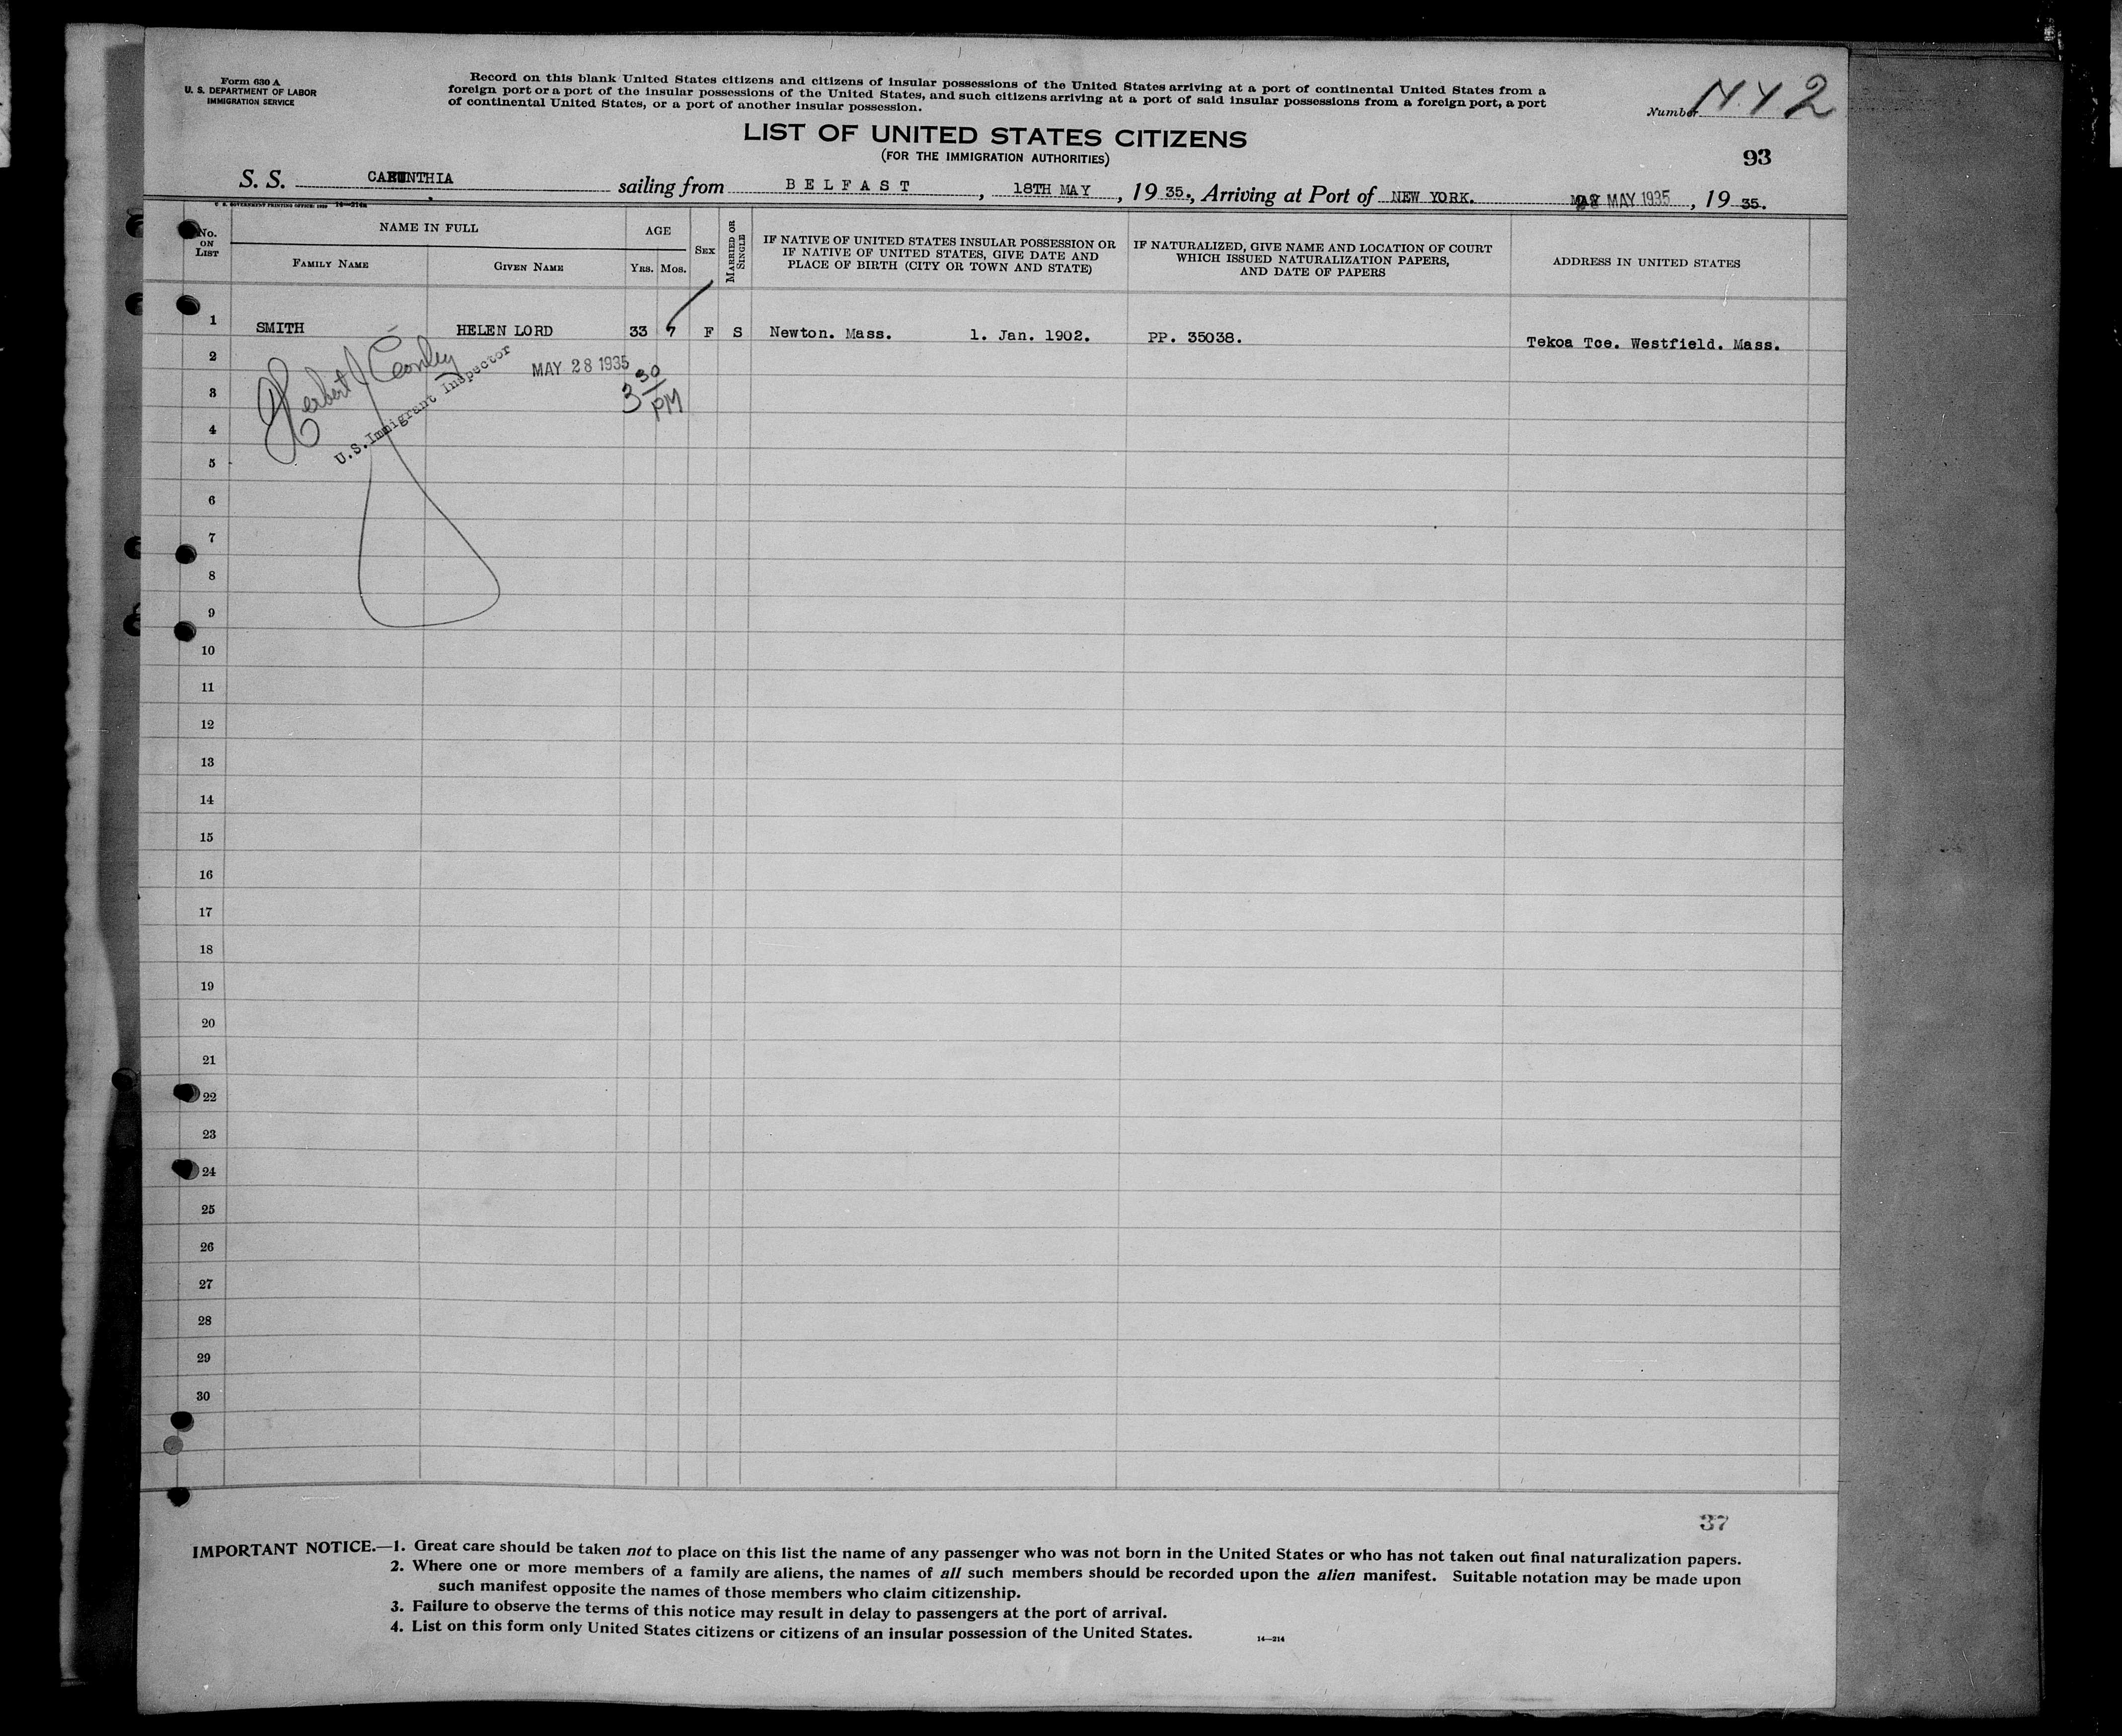 Form 630 A
U. S. DEPARTMENT OF LABOR
IMMIGRATION SERVICE
Record on this blank United States citizens and citizens of insular possessions of the United States arriving at a port of continental United States from a
foreign port or a port of the insular possessions of the United States, and such citizens arriving at a port of said insular possessions from a foreign port, a port
of continental United States, or a port of another insular possession.
Number N.Y 2
LIST OF UNITED STATES CITIZENS
(FOR THE IMMIGRATION AUTHORITIES)
93
S. S. CARINTHIA sailing from BELFAST, 18TH MAY, 19 35., Arriving at Port of NEW YORK. 28 MAY 1935, 19 35.
U. S. GOVERNMENT PRINTING OFFICE: 1929 14—214a
No. ON LIST
NAME IN FULL
FAMILY NAME
GIVEN NAME
AGE
YRS. MOS.
SEX
MARRIED OR SINGLE
IF NATIVE OF UNITED STATES INSULAR POSSESSION OR
IF NATIVE OF UNITED STATES, GIVE DATE AND
PLACE OF BIRTH (CITY OR TOWN AND STATE)
IF NATURALIZED, GIVE NAME AND LOCATION OF COURT
WHICH ISSUED NATURALIZATION PAPERS,
AND DATE OF PAPERS
ADDRESS IN UNITED STATES
1 SMITH HELEN LORD 33 7 F S Newton. Mass. 1. Jan. 1902. PP. 35038. Tekoa Tce. Westfield. Mass.
2
MAY 28 1935
3 30 PM
Herbert J Conley
U.S. Immigrant Inspector
3
4
5
6
7
8
9
10
11
12
13
14
15
16
17
18
19
20
21
22
23
24
25
26
27
28
29
30
37
IMPORTANT NOTICE.—1. Great care should be taken not to place on this list the name of any passenger who was not born in the United States or who has not taken out final naturalization papers.
2. Where one or more members of a family are aliens, the names of all such members should be recorded upon the alien manifest. Suitable notation may be made upon
such manifest opposite the names of those members who claim citizenship.
3. Failure to observe the terms of this notice may result in delay to passengers at the port of arrival.
4. List on this form only United States citizens or citizens of an insular possession of the United States.
14—214